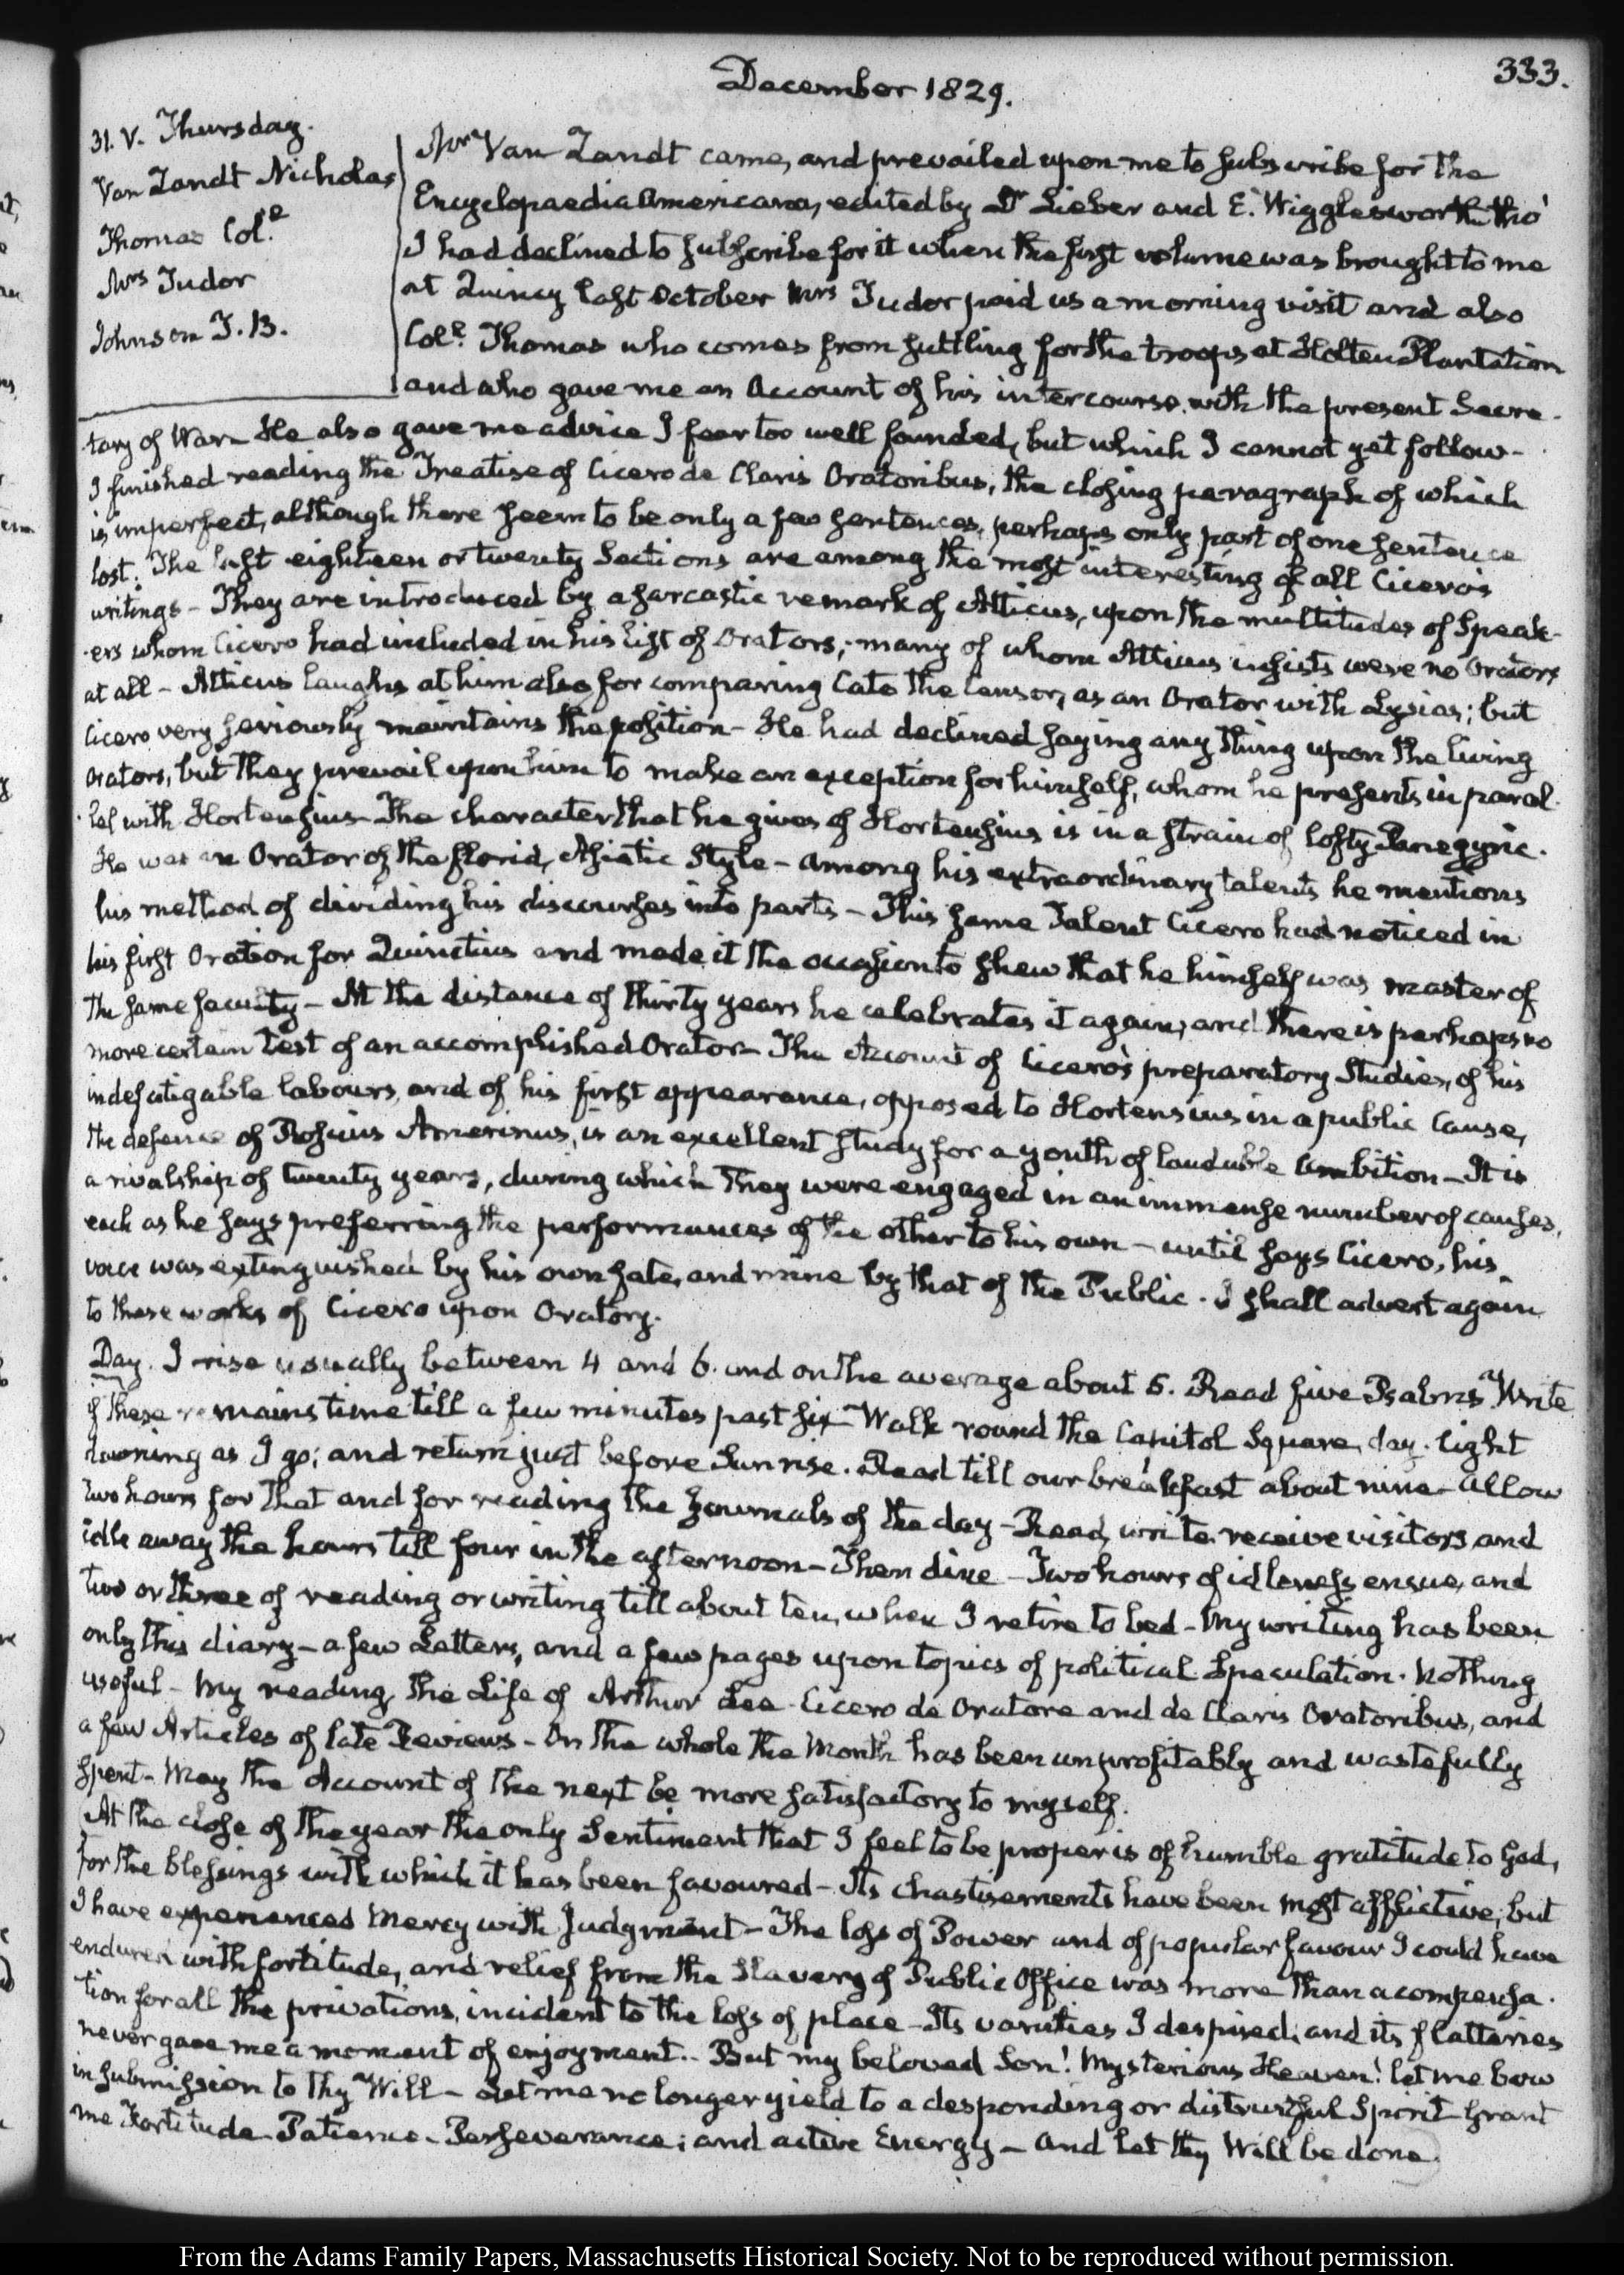 December 1829.
333.
31. V. Thursday.
Van Zandt Nicholas
Thomas Col.e
Mrs Tudor
Johnson J. B.
Mr Van Zandt came, and prevailed upon me to subscribe for the
Encyclopaedia Americana, edited by Dr Lieber and E. Wigglesworth tho'
I had declined to subscribe for it when the first volume was brought to me
at Quincy last October Mrs Tudor paid us a morning visit and also
Coll. Thomas who comes from suttling for the troops at Holten Plantation
and who gave me an Account of his intercourse with the present Secre-
tary of War. He also gave me advice I fear too well founded, but which I cannot yet follow-
I finished reading the Treatise of Cicero de Claris Oratoribus, the closing paragraph of which
is imperfect, although there seem to be only a few sentences, perhaps only part of one sentence
lost. The last eighteen or twenty Sections are among the most interesting of all Cicero's
writings - They are introduced by a sarcastic remark of Atticus, upon the multitudes of Speak-
-ers whom Cicero had included in his list of Orators; many of whom Atticus insists were no Orators
at all - Atticus laughs at him also for comparing Cato the Censor, as an Orator with Lysias; but
Cicero very seriously maintains the position - He had declined saying any thing upon the living
Orators, but they prevail upon him to make an exception for himself, whom he presents in paral-
-lel with Hortensius - The character that he gives of Hortensius is in a strain of lofty Panegyric.
He was an Orator of the florid, Asiatic Style - Among his extraordinary talents he mentions
his method of dividing his discourses into parts - This same Talent Cicero had noticed in
his first Oration for Quinctius and made it the occasion to shew that he himself was master of
the same faculty - At the distance of thirty years he celebrates it again, and there is perhaps no
more certain test of an accomplished Orator - The Account of Cicero's preparatory Studies, of his
indefatigable labours, and of his first appearance, opposed to Hortensius in a public Cause,
the defence of Roscius Amerinus, is an excellent study for a youth of laudable Ambition - It is
a rivalship of twenty years, during which they were engaged in an immense number of causes,
each as he says preferring the performances of the other to his own - until says Cicero, his
voice was extinguished by his own fate, and mine by that of the Public. I shall advert again
to these works of Cicero upon Oratory.
Day. I rise usually between 4 and 6. and on the average about 5. Read five Psalms Write
if there remains time till a few minutes past six - Walk round the Capitol Square, day-light
dawning as I go; and return just before Sun rise. Read till our breakfast about nine - Allow
two hours for that and for reading the Journals of the day - Read, write, receive visitors, and
idle away the hours till four in the afternoon - Then dine - Two hours of idleness ensue, and
two or three of reading or writing till about ten, when I retire to bed - My writing has been
only this diary - a few Letters, and a few pages upon topics of political Speculation. Nothing
useful - My reading, the Life of Arthur Lee - Cicero de Oratore and de Claris Oratoribus, and
a few Articles of late Reviews - On the whole the Month has been unprofitably and wastefully
spent - May the Account of the next be more satisfactory to myself.
At the close of the year the only Sentiment that I feel to be proper is of humble gratitude to God,
for the blessings with which it has been favoured - Its chastisements have been most afflictive; but
I have experienced Mercy with Judgment - The loss of Power and of popular favour I could have
endured with fortitude, and relief from the Slavery of Public Office was more than a compensa-
tion for all the privations, incident to the loss of place - Its vanities I despised, and its flatteries
never gave me a moment of enjoyment. - But my beloved Son! Mysterious Heaven! let me bow
in submission to thy Will - Let me no longer yield to a desponding or distrustful Spirit Grant
me Fortitude - Patience - Perseverance; and active Energy - and let thy Will be done.
From the Adams Family Papers, Massachusetts Historical Society. Not to be reproduced without permission.